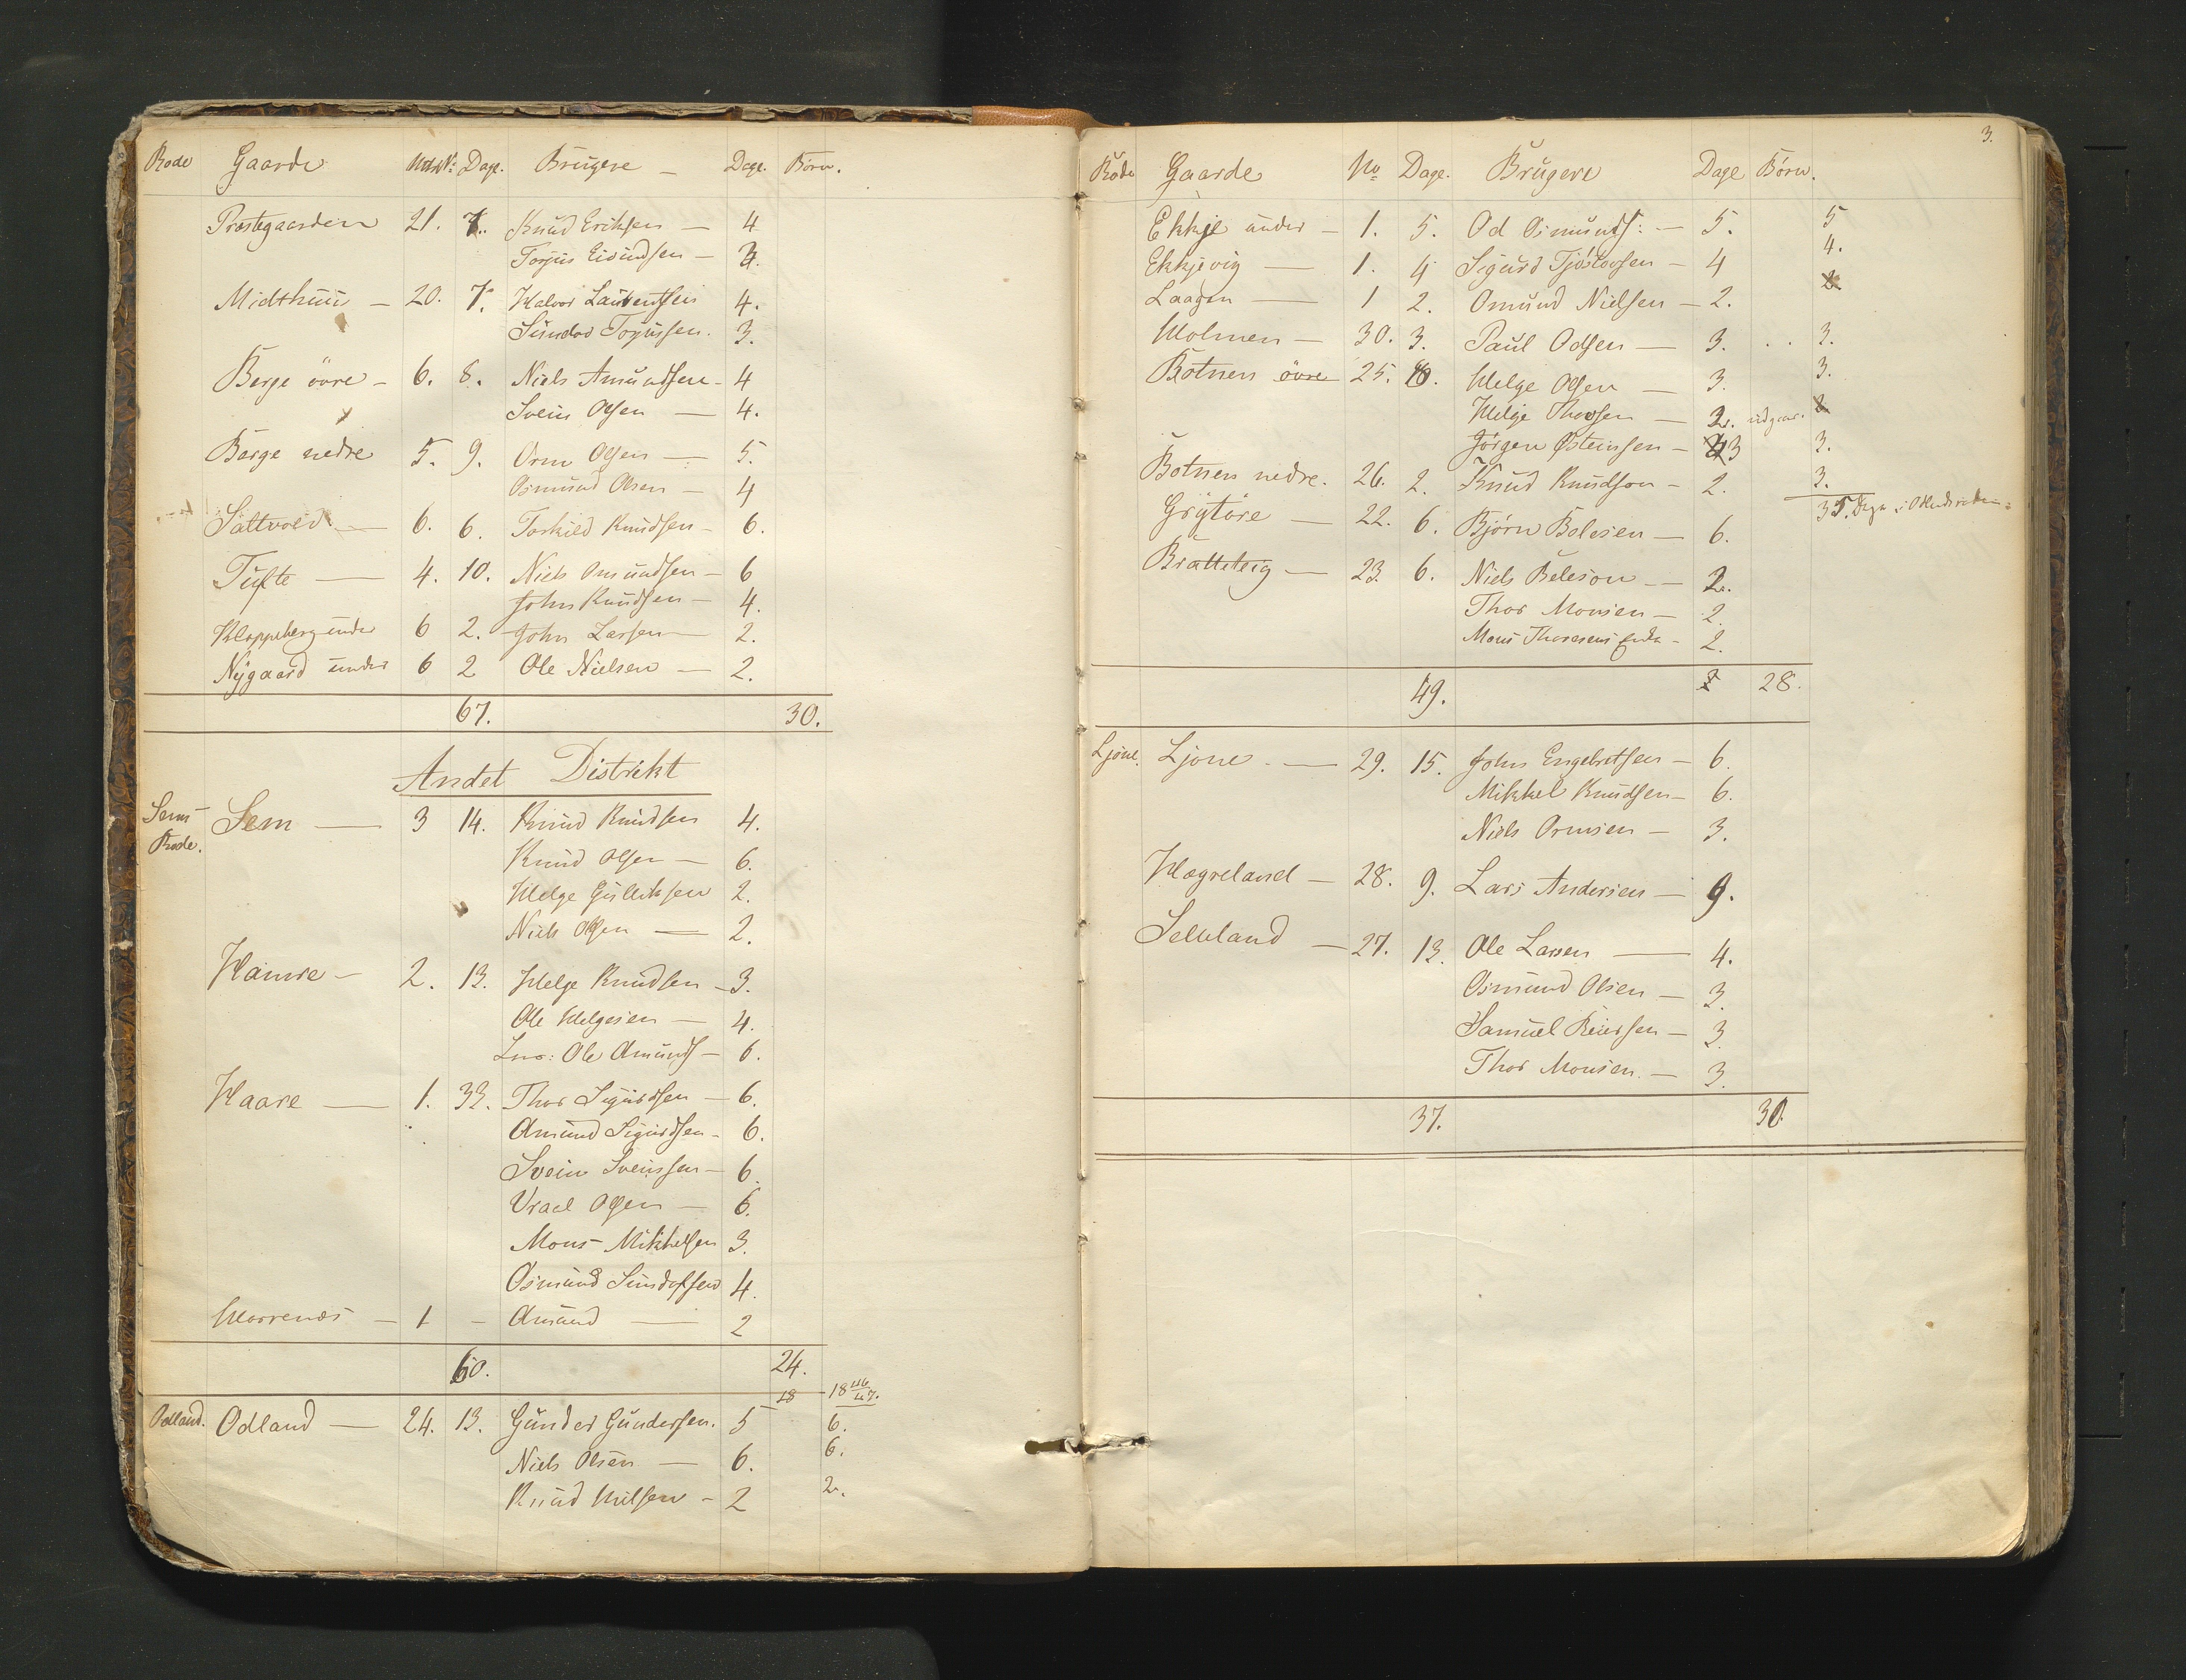 Rode Gaarde Matr:Nº Dage. Brugere Dage. Børn.
Præstegaarden 21. 7. Knud Eriksen — 4
Torjus Eivindsen — 3.
Midthuu — 20. 7. Halvor Lauventsen 4.
Sundov Torjussen. 3.
Berge övre — 6. 8. Niels Amundsen — 4
Svein Olsen — 4.
Berge nedre 5. 9. Orm Olsen — 5.
Osmund Olsen — 4
Saltvold — 6. 6. Torkild Knudsen — 6.
Tufte — 4. 10. Niels Omundsen — 6
John Knudsen — 4.
Kloppeberg under 6 2. John Larsen — 2.
Nÿgaard under 6 2 Ole Nielsen — 2.
67. 30.
Andet Distrikt
Sems Rode. Sem — 3 14. Knud Knudsen 4.
Knud Olsen — 6.
Helge Gulleksen 2.
Niels Olsen — 2.
Hamre — 2. 13. Helge Knudsen — 3.
Ole Helgesen — 4.
Ole Amunds — 6.
Haare — 1. 33. Thor Sigurdsen — 6.
Amund Sigurdsen — 6.
Svein Sveinsen — 6.
Vraal Olsen — 6.
Mons Mikkelsen 3.
Osmund Sundofsen 4.
1 — Amund — 2
60. 24.
18 18 46/47.
Odland. Odland — 24. 13. Gunder Gundersen. 5 6.
Niels Olsen — 6. 6.
Knud Nilsen — 2 2.
3.
Rode Gaarde No Dage. Brugere Dage Børn.
Ekkje under — 1. 5. Od Osmunds: — 5. 5
Ekkjevig — 1. 4 Sigurd Tjöstovsen — 4 4.
Laagen — 1 2. Omund Nielsen — 2. 2.
Holmen — 30. 3. Paul Odsen — 3. . . 3.
Botnen övre 25. Helge Olsen — 3. 3.
Helge Thorsen — 2. udgaar. 2
Jörgen Østeinsen — 3 3.
Botnen nedre. 26. 2. Knud Knudson — 2. 3.
Grÿtöre — 22. 6. Bjørn Bolesen — 6. 35. Dage i
Bratteteig — 23. 6. Niels Beleson — 2.
Thor Monsen — 2.
Mons Thorsens Enke — 2.
49. 28.
Ljone. Ljone — 29. 15. John Engebretsen — 6.
Mikkel Knudsen — 6.
Niels Ormsen — 3.
Hægreland — 28. 9. Lars Andersen — 9.
Selleland — 27. 13. Ole Larsen — 4.
Osmund Olsen — 3.
Samuel Reiersen — 3.
Thor Monsen. — 3.
37. 30.